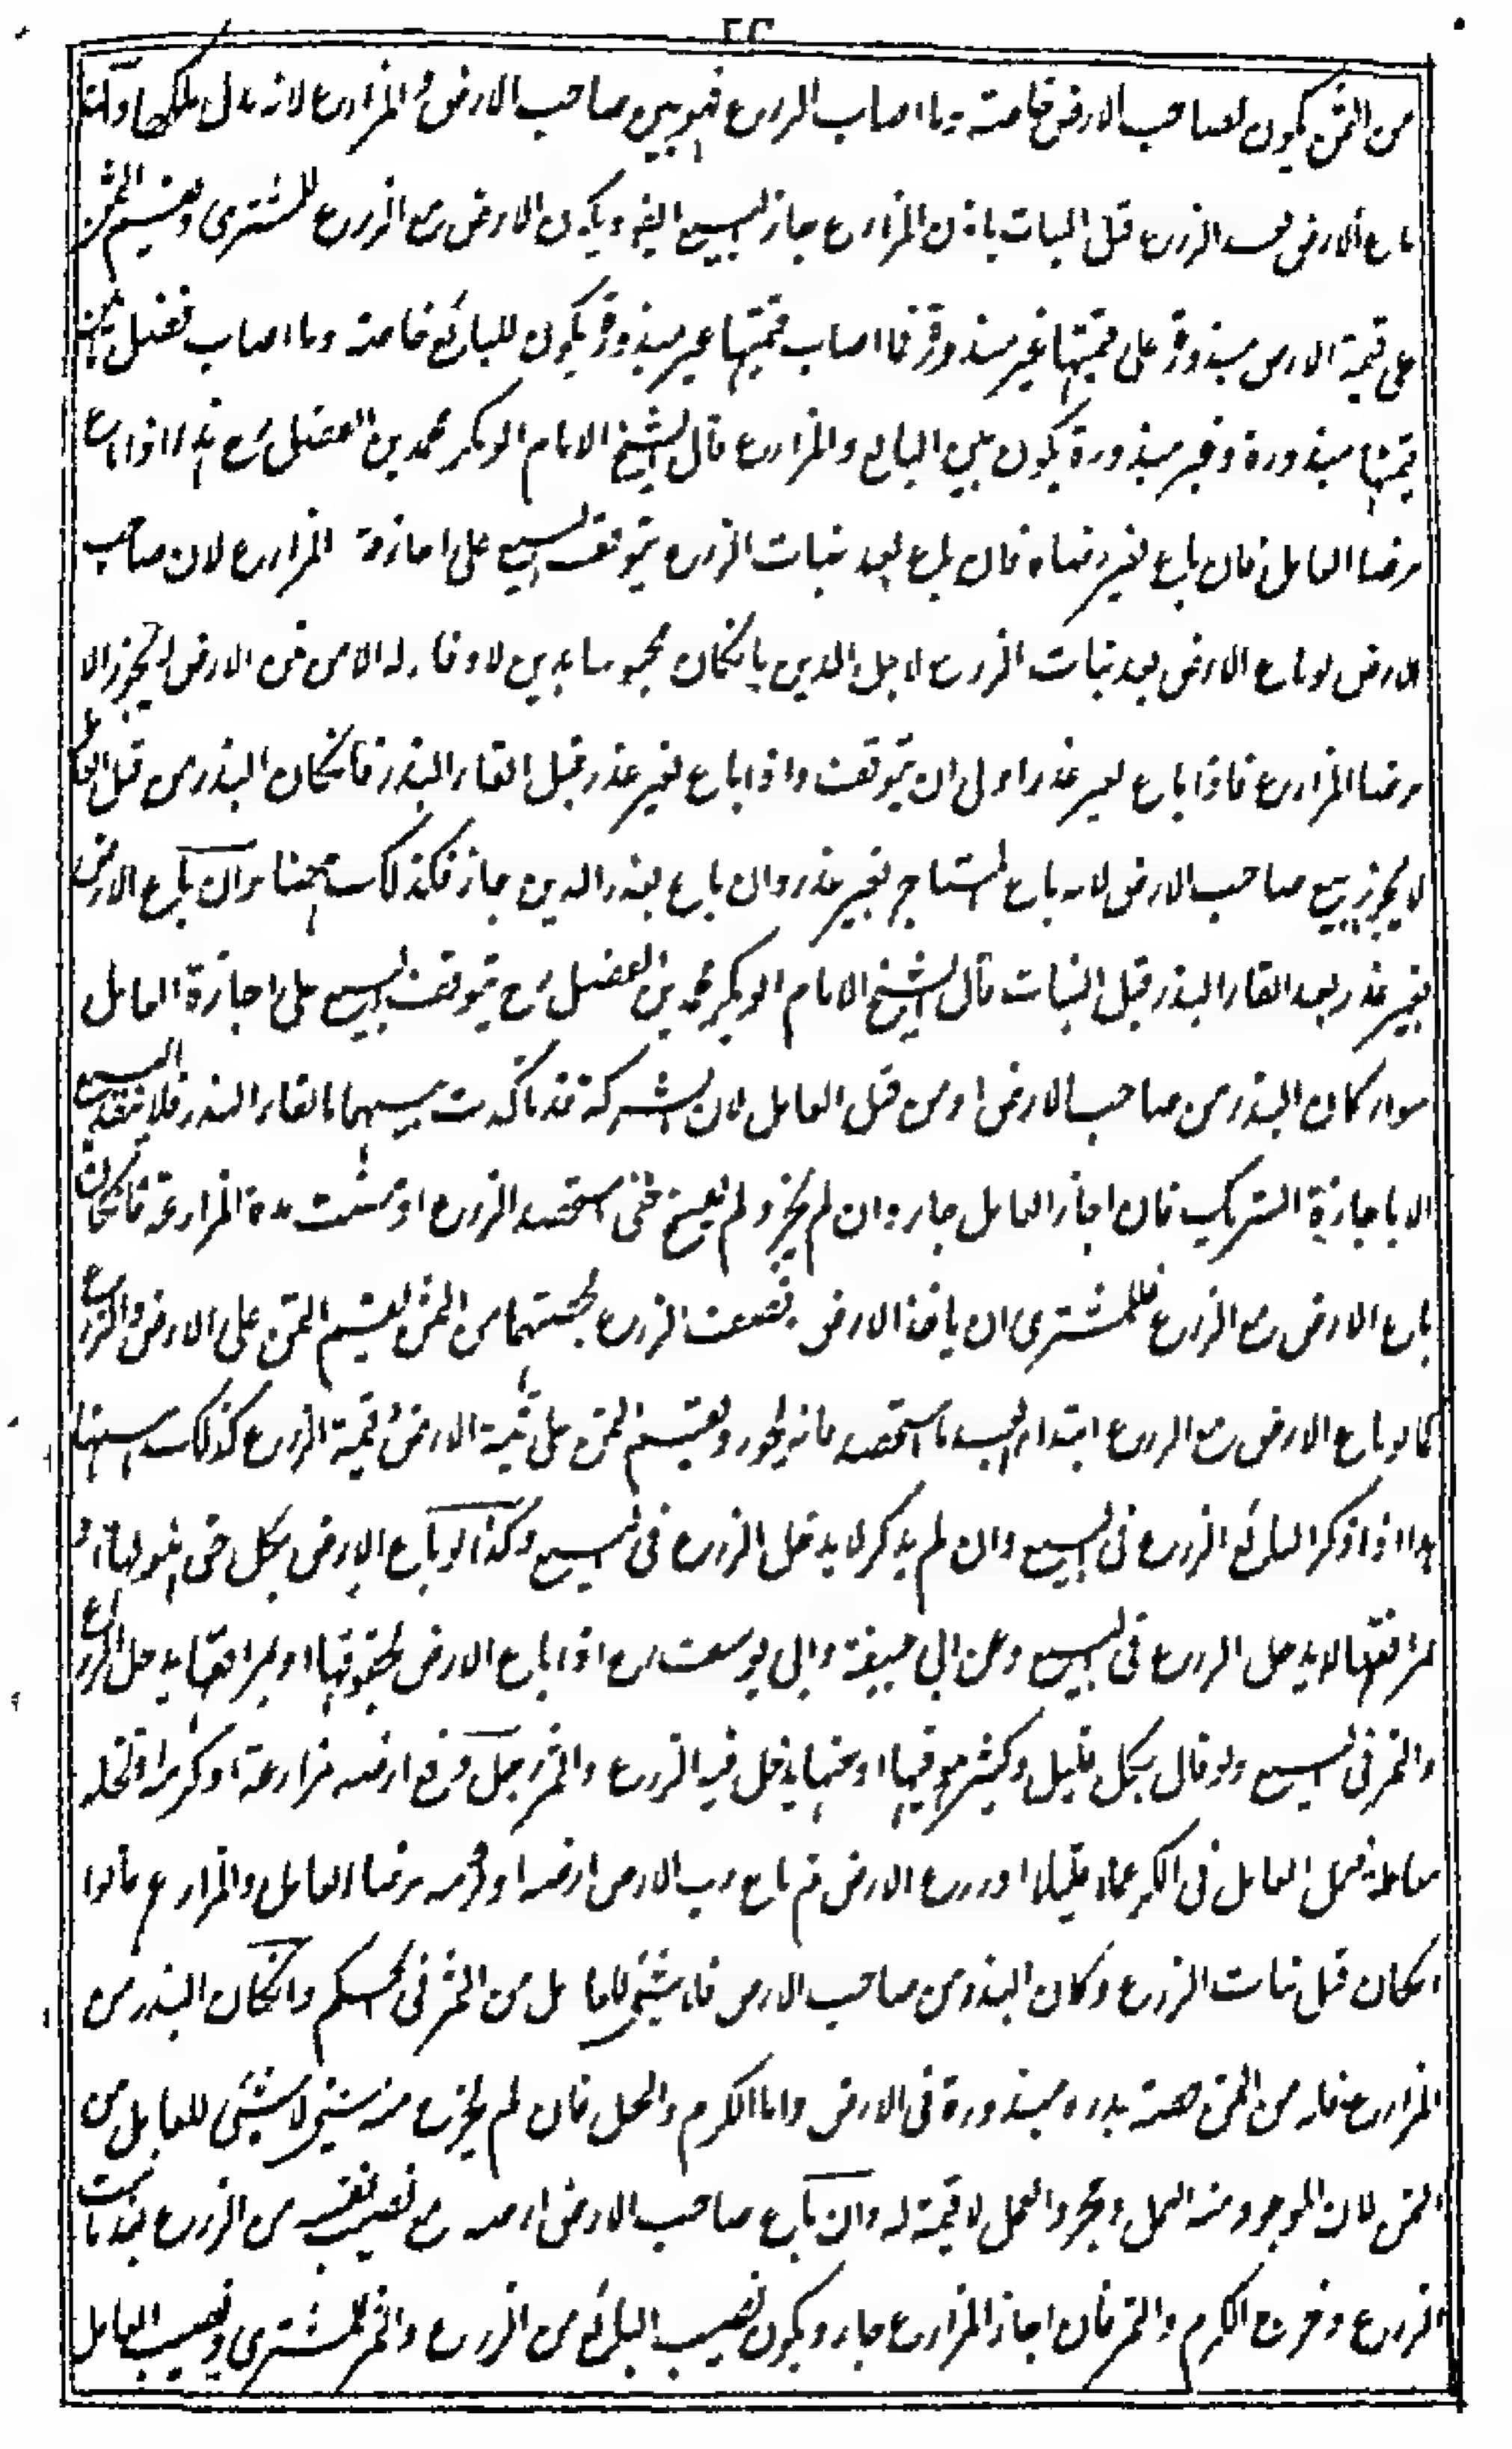 من الثمن يكون لصاحب الارض خاصة وما اصاب الزرع فهو بين صاحب الارض والمزارع لانه بدل ملكهما وان
باع الارض بعد الزرع قبل النبات باذن المزارع جاز البيع ايضا ويكون الارض مع الزرع للمشترى ويقسم الثمن
على قيمة الارض مبذورة وعلى قيمتها غير مبذورة فما اصاب قيمتها غير مبذورة يكون للبائع خاصة وما اصاب فضل ما بين
قيمتها مبذورة وغير مبذورة يكون بين البايع والمزارع قال الشيخ الامام ابوبكر محمد بن الفضل رح هذا اذا باع
برضا العامل فان باع بغير رضاه فان باع بعد نبات الزرع يتوقف البيع على اجازة المزارع لان صاحب
الارض لو باع الارض بعد نبات الزرع لاجل الدين بانكان محبوسا بدين لا وفاء له الا من ثمن الارض لا يجوز الا
برضا المزارع فاذا باع بغير عذر اولى ان يتوقف واذا باع بغير عذر قبل القاء البذر فانكان البذر من قبل العامل
لا يجوز بيع صاحب الارض لانه باع المستاجر بغير عذر وان باع بعذر الدين جاز فكذلك ههنا وان باع الارض
بغير عذر بعد القاء البذر قبل النبات قال الشيخ الامام ابوبكر محمد بن الفضل رح يتوقف البيع على اجازة العامل
سواء كان البذر من صاحب الارض او من قبل العامل لان الشركة قد تاكدت بينهما بالقاء البذر فلا ينفذ البيع
الا باجازة الشريك فان اجاز العامل جاز وان لم يجز ولم يفسخ حتى استحصد الزرع او تمت مدة المزارعة فانكان
باع الارض مع الزرع فللمشترى ان ياخذ الارض بنصف الزرع بحصتهما من الثمن يقسم الثمن على الارض والزرع
كما لو باع الارض مع الزرع ابتداء بعد ما استحصد فانه يجوز ويقسم الثمن على قيمة الارض وقيمة الزرع كذلك ههنا
هذا اذا ذكر البائع الزرع فى البيع وان لم يذكر لا يدخل الزرع فى البيع وكذا لو باع الارض بكل حق هو لها او
بمرافقها لا يدخل الزرع فى البيع وعن ابى حنيفة وابى يوسف رح اذا باع الارض بحقوقها او بمرافقها يدخل الزرع
والثمر فى البيع ولو قال بكل قليل وكثير هو فيها او منها يدخل فيه الزرع والثمر رجل دفع ارضه مزارعة او كرمه او نخله
معاملة فعمل العامل فى الكرم عملا قليلا او زرع الارض ثم باع رب الارض ارضه او كرمه برضا العامل والمزارع قالوا
انكان قبل نبات الزرع وكان البذر من صاحب الارض فلا شئ للعامل من الثمن فى الحكم وانكان البذر من
المزارع فله من الثمن حصة بذره مبذورة فى الارض واما الكرم والنخل فان لم يخرج منه شئ لا شئ للعامل من
الثمن لان الموجود منه العمل ومجرد العمل لا قيمة له وان باع صاحب الارض ارضه مع نصيب نفسه من الزرع بعد نبات
الزرع وخروج الكرم والثمر فان اجاز المزارع جاز ويكون نصيب البائع من الزرع والثمر للمشترى ونصيب العامل